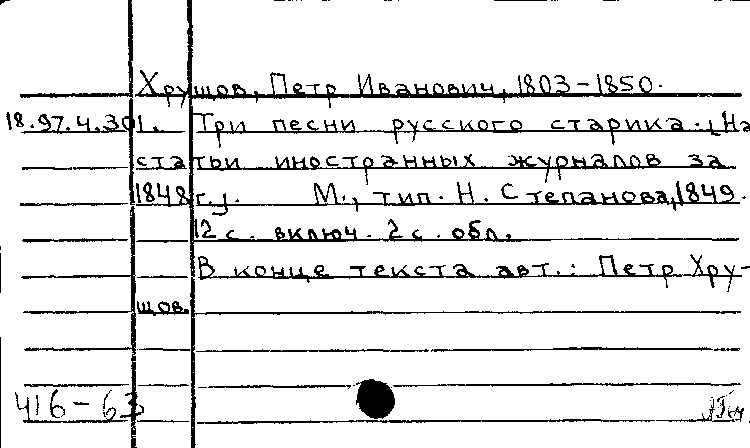 Хрущов, Петр Иванович, 1803-1850.
18.97.4.301. Три песни русского старика. [На
статьи иностранных журналов за
1848 г.]. М., тип. Н. Степанова, 1849.
12 с. включ. 2 с. обл.
В конце текста авт.: Петр Хру-
щов.
416-63